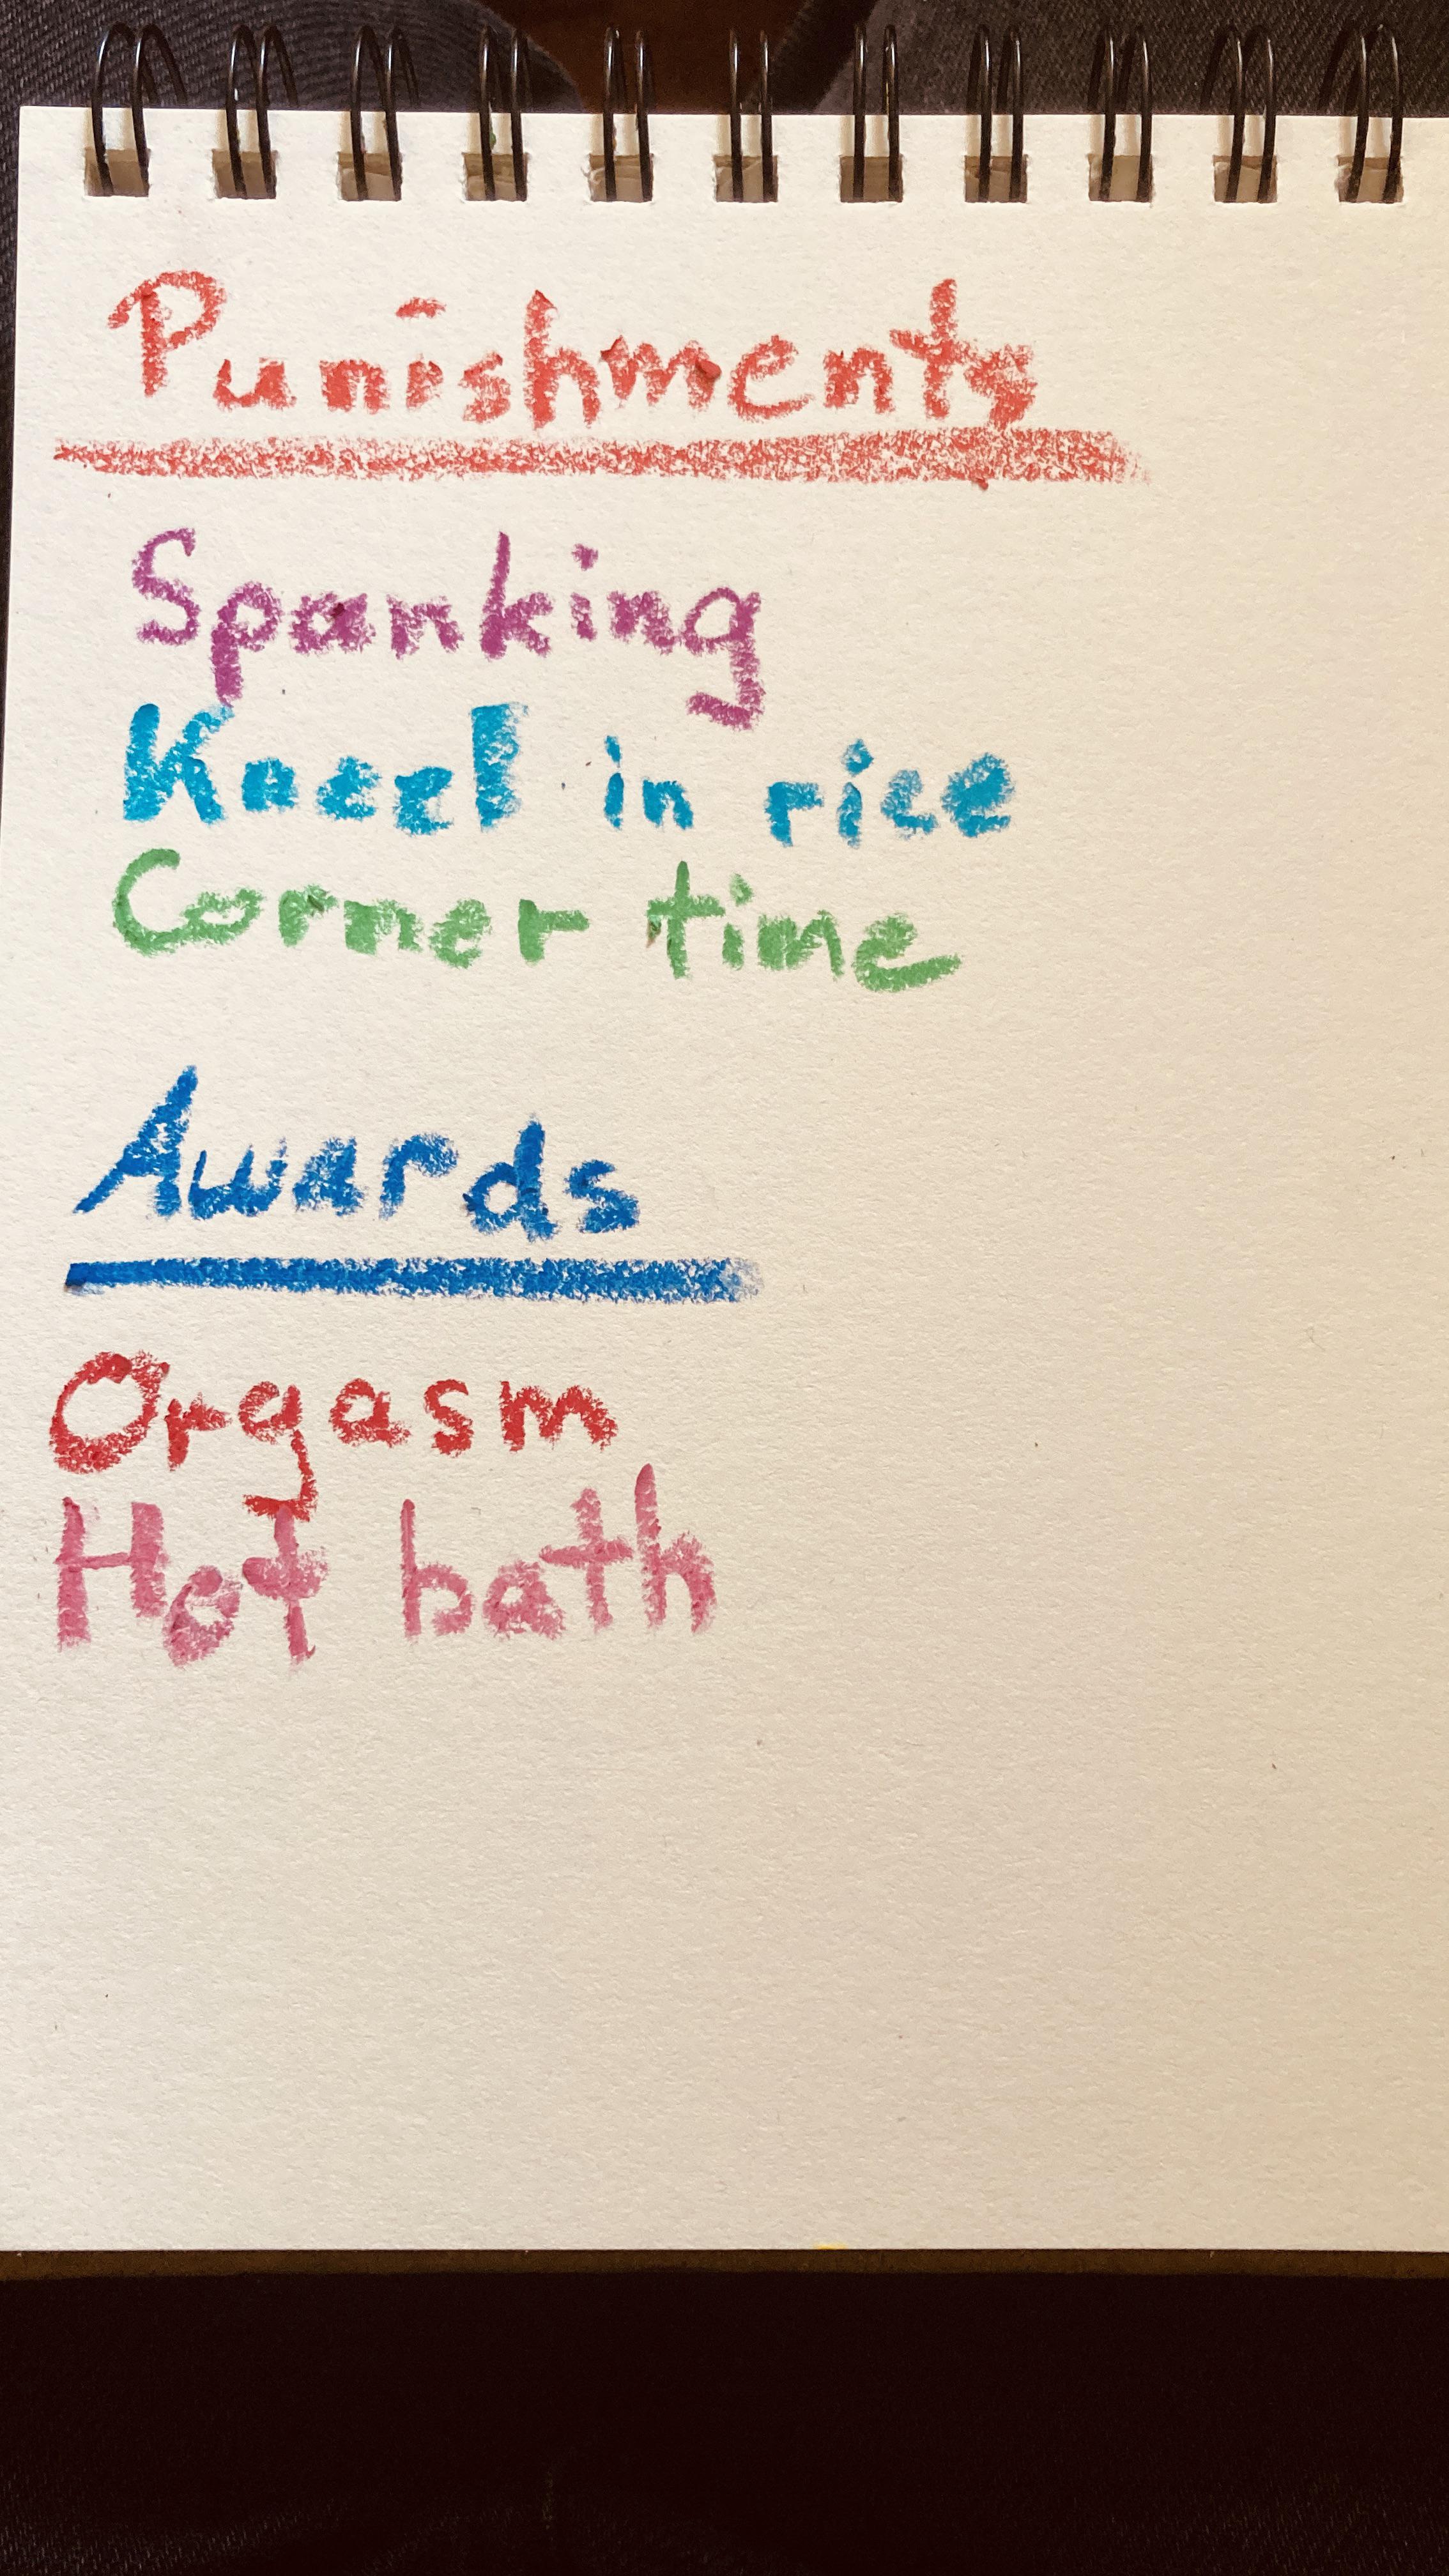 Punishments
Spanking
Kneel in rice
Corner time
Awards
Orgasm
Hot bath